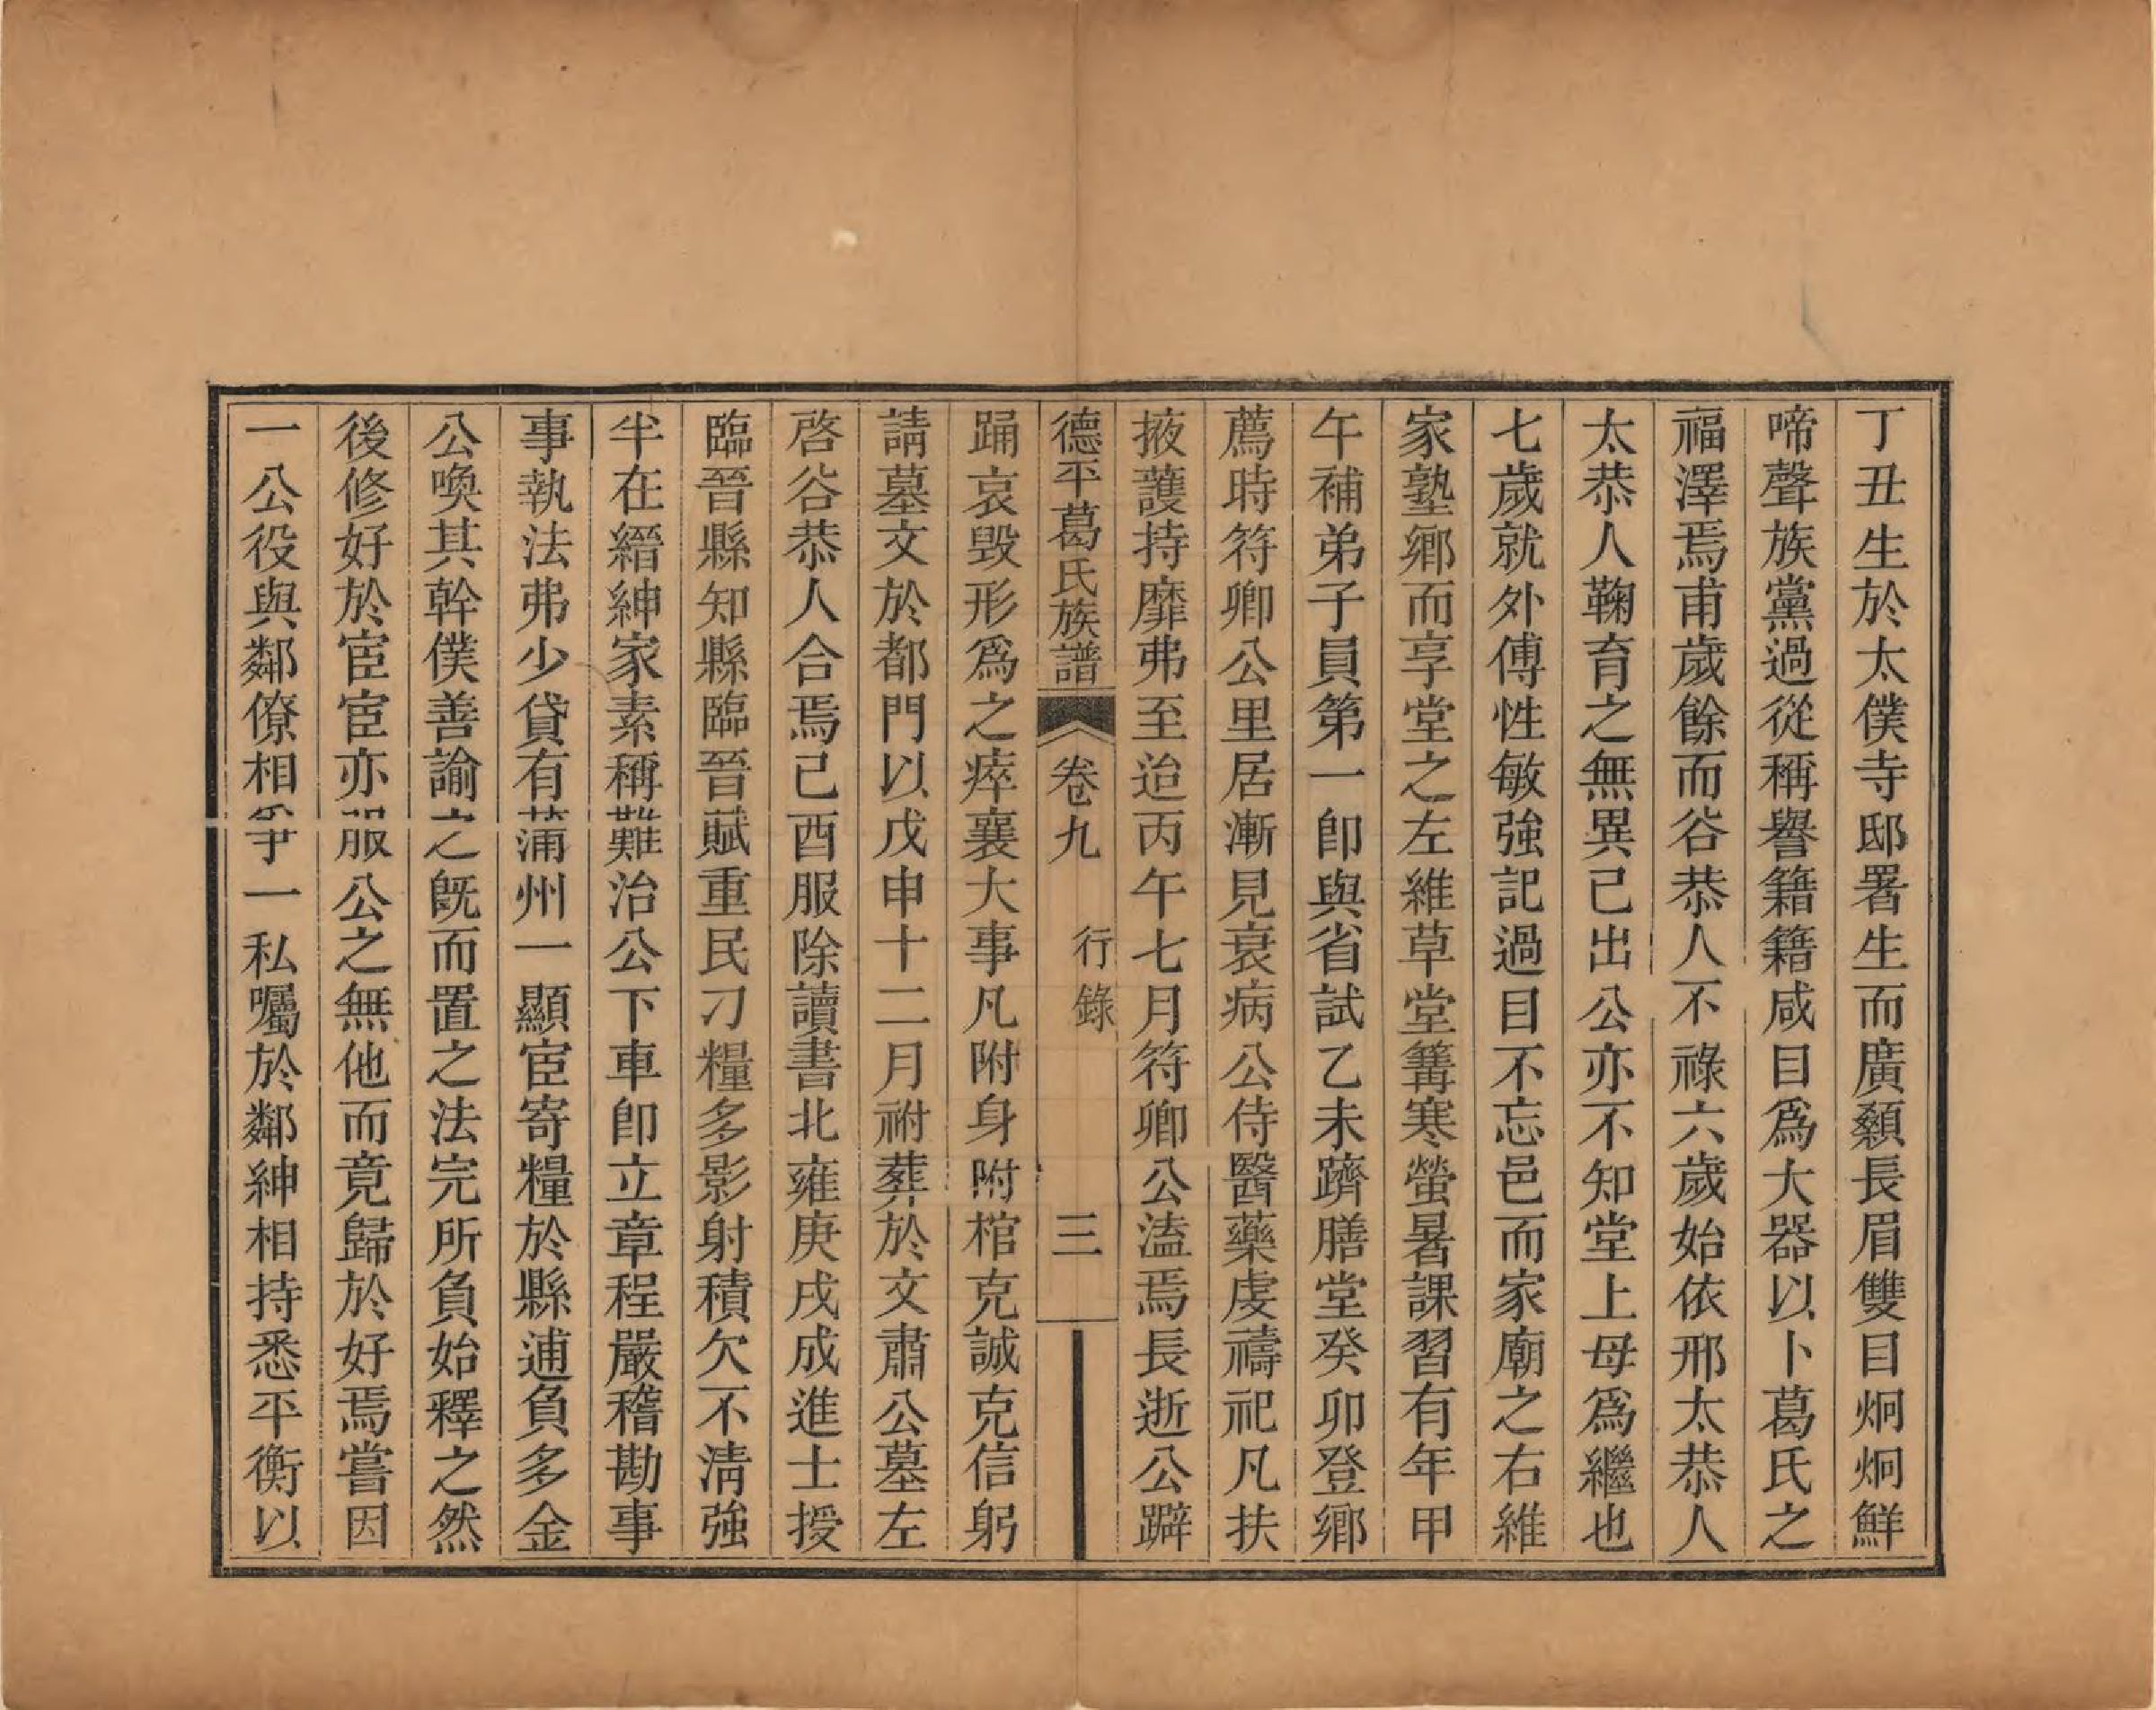 丁丑生於太僕寺邸署生而廣顙長眉雙目炯炯鮮
啼聲族黨過從稱譽籍籍咸目爲大器以卜葛氏之
福澤焉甫歲餘而谷恭人不祿六歲始依邢太恭人
太恭人鞠育之無異己出公亦不知堂上母爲繼也
七歲就外傅性敏強記過目不忘邑而家廟之右維
家塾鄉而享堂之左維草堂篝寒螢暑課習有年甲
午補弟子員第一卽與省試乙未躋膳堂癸卯登鄉
薦時符卿公里居漸見衰病公侍醫藥虔禱祀凡扶
掖護持靡弗至迨丙午七月符卿公溘焉長逝公躃
德平葛氏族譜 卷九 行錄 三
踊哀毁形爲之瘁襄大事凡附身附棺克誠克信躬
請墓文於都門以戊申十二月祔葬於文肅公墓左
啓谷恭人合焉己酉服除讀書北雍庚戌成進士授
臨晉縣知縣臨晉賦重民刁糧多影射積欠不淸強
半在縉紳家素稱難治公下車卽立章程嚴稽勘事
事執法弗少貸有蒲州一顯宦寄糧於縣逋負多金
公喚其幹僕善諭之旣而置之法完所負始釋之然
後修好於宦宦亦服公之無他而竟歸於好焉嘗因
一公役與鄰僚相爭一私囑於鄰紳相持悉平衡以